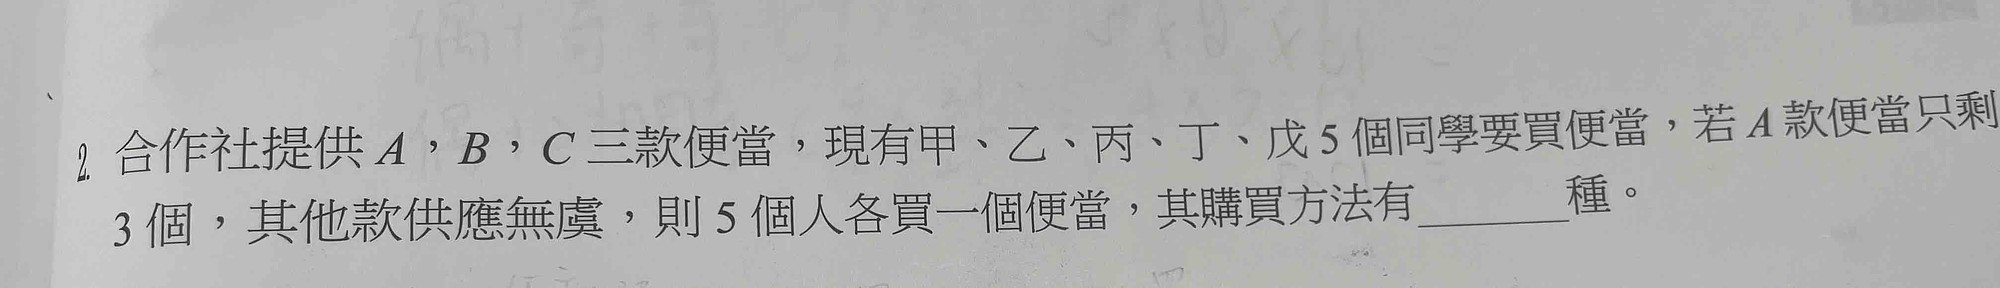 2. 合作社提供 A,B,C 三款便當,現有甲、乙、丙、丁、戊 5 個同學要買便當,若 A 款便當只剩
3 個,其他款供應無虞,則 5 個人各買一個便當,其購買方法有______種。